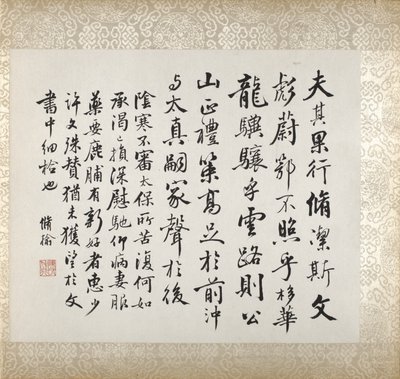 夫其果行脩潔斯文
彪蔚鄂不照乎栘華
龍驥驤乎雲路則公
山正禮策高足於前沖
与太真嗣家聲於後
陰寒不審太保所苦復何如
承渴已損深慰馳仰病妻服
藥要鹿脯有新好者惠少
許文殊贊猶未獲望於文
書中細撿也